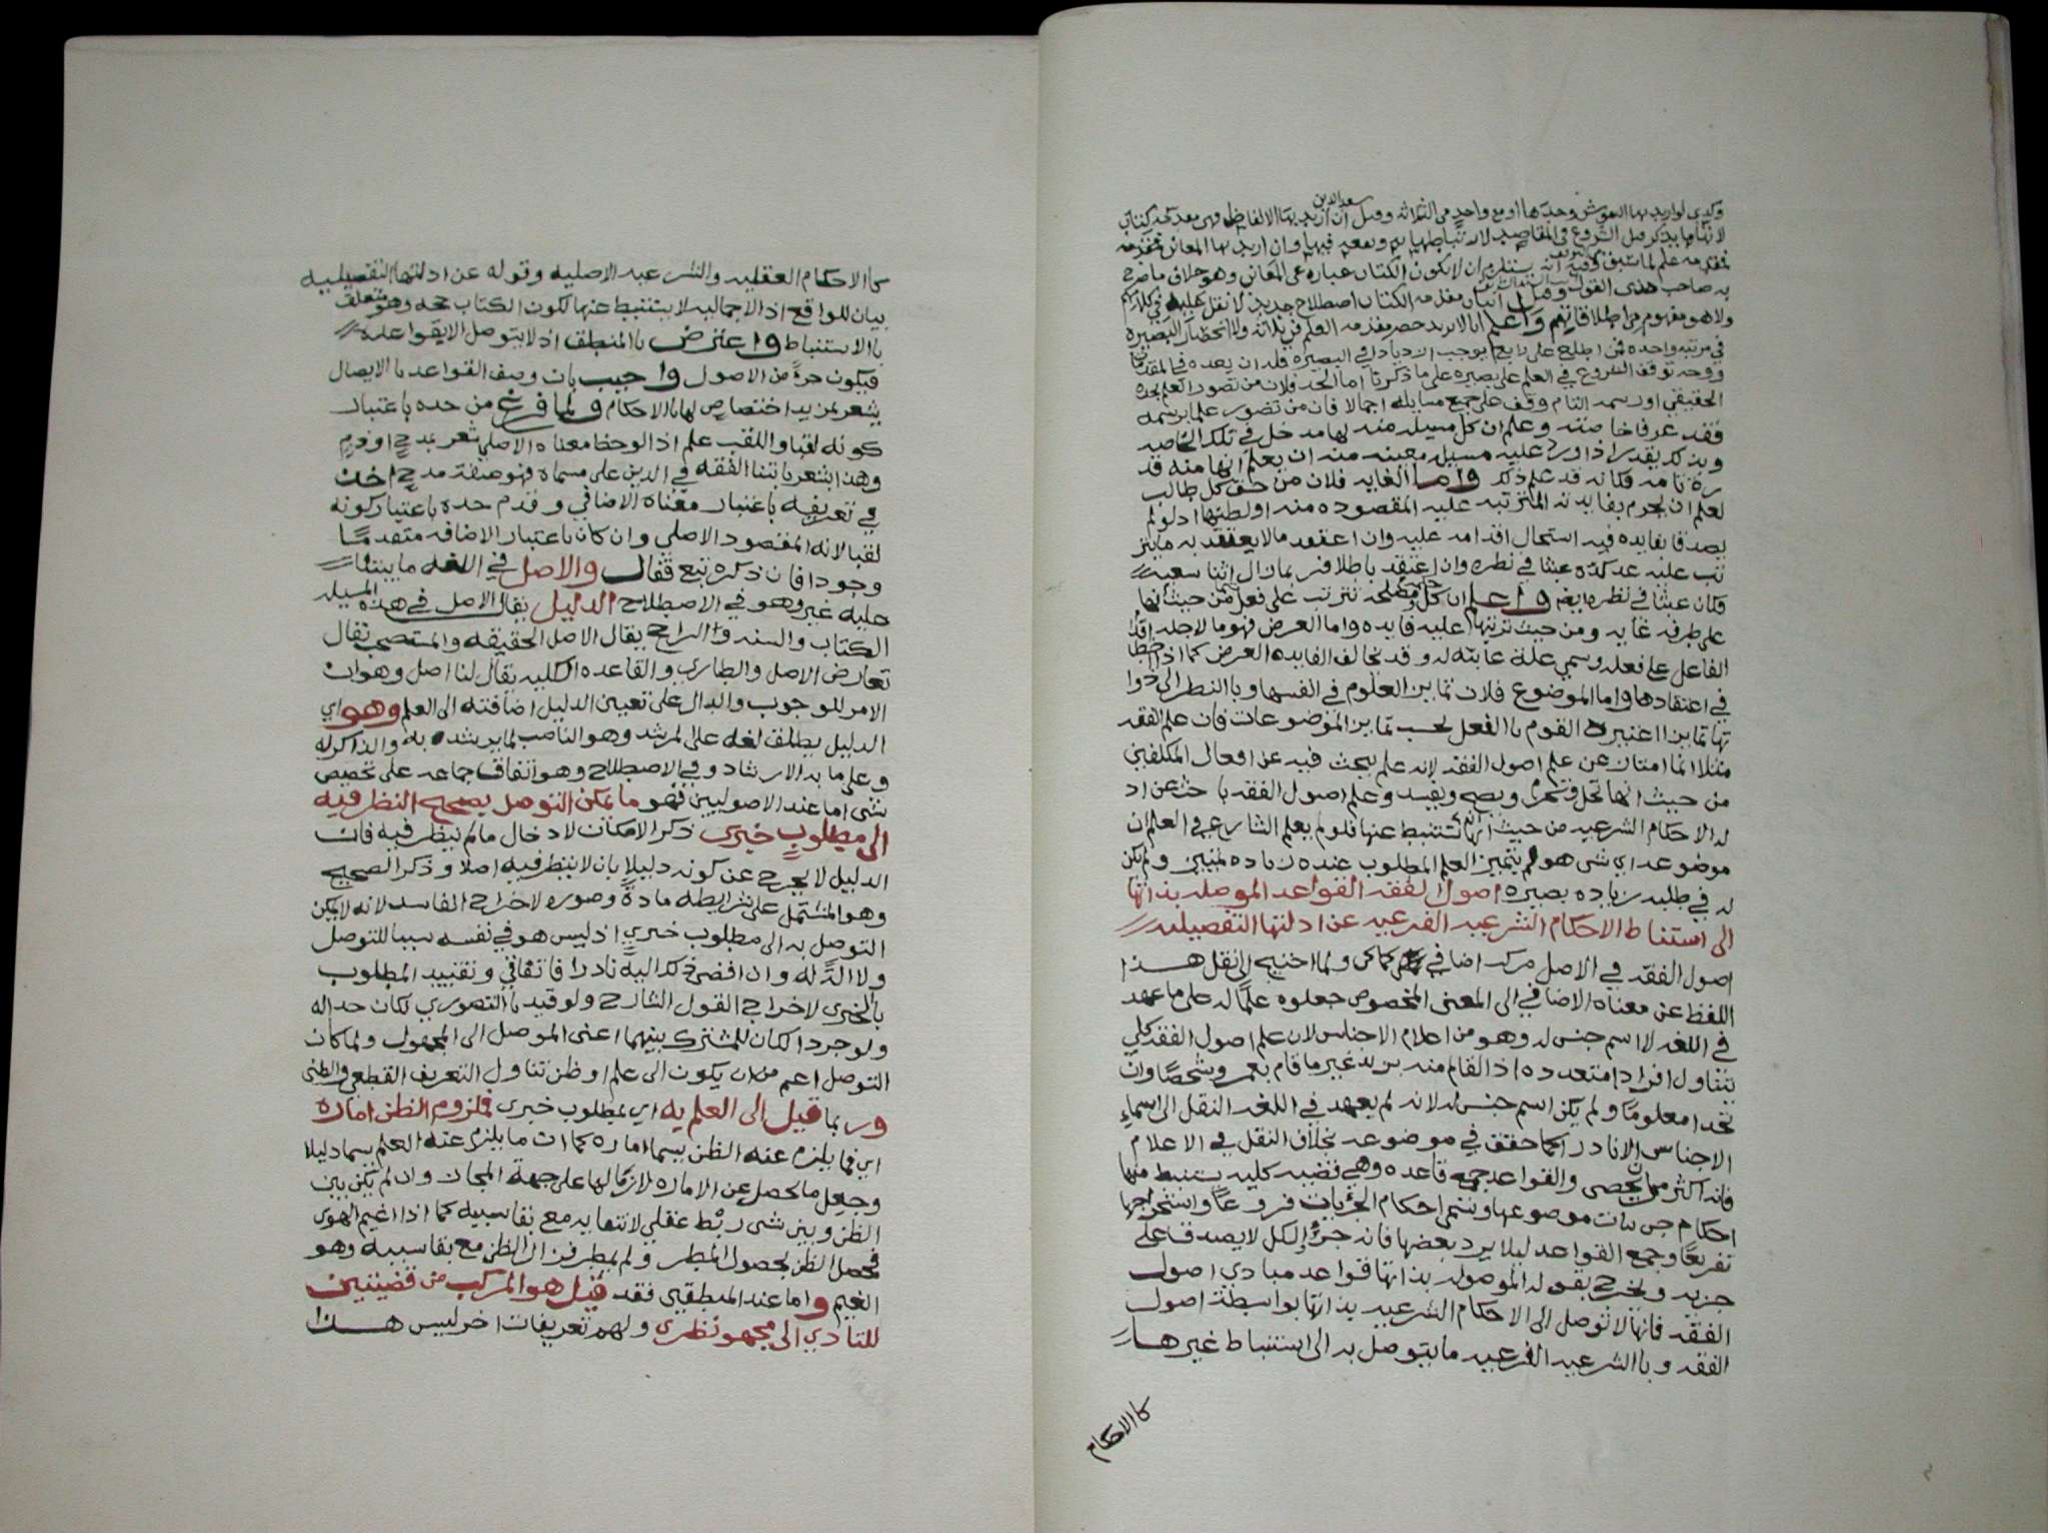 سعد الدين
وكذا لو اريد بها النقوش وحدها او مع واحد من الثلاثة وقيل ان اريد بها الالفاظ فهي مقدمة كتاب
لانها ما يذكر قبل الشروع في المقاصد لارتباطها به ونفعه فيها وان اريد بها المعاني فمقدمه
علم لما سبق وفيه انه يستلزم ان لا يكون الكتاب عباره عن المعاني وهو خلاف ما صرح
به صاحب هذى القول وقيل اثبات مقدمه الكتاب اصطلاح جديد لا نقل عليه في كلامهم
ولا هو مفهوم من اطلاقاتهم واعلم انا لا نريد حصر مقدمه العلم في ثلاثه ولا انحصار البصيره
في مرتبه واحده فمن اطلع على رابع يوجب الازدياد في البصيره فله ان يعده في المقدمات
ووجه توقف الشروع في العلم على بصيره على ما ذكرنا اما الحد فلان من تصور العلم بحده
الحقيقي او رسمه التام وقف على جميع مسايله اجمالا فان من تصور علما برسمه
فقد عرف خاصته وعلم ان كل مسيله منه لها مدخل في تلك الخاصه
وبذلك يقدر اذا ورد عليه مسيله معينه منه ان يعلم انها منه قد
رة تامه فكانه قد علم ذلك واما الغايه فلان من حق كل طالب
لعلم ان يجزم بفايدته المترتبه عليه المقصوده منه اولطلبها اذ لو لم
يصدق بفايده فيه استحال اقدامه عليه وان اعتقد ما لا يعتقد به ما يتر
تب عليه عد كده عبثا في نظره وان اعتقد باطلا فربما زال اثنا سعيه
فكان عبثا في نظره ايضا واعلم ان كل مصلحه تترتب على فعل من حيث انها
على طرفه غايه ومن حيث ترتبها عليه فايده واما الغرض فهو ما لاجله اقدام
الفاعل على فعله وسمي علة غائيه له وقد تخالف الفايده الغرض كما اذا اخطا
في اعتقادها واما الموضوع فلان تمايز العلوم في انفسها وبالنظر الى ذوا
تها تمايز اعتبره القوم بالفعل بحسب تمايز الموضوعات فان علم الفقه
مثلا انما امتاز عن علم اصول الفقه لانه علم يبحث فيه عن افعال المكلفين
من حيث انها تحل وتحرم ويصح ويفسد وعلم اصول الفقه باحث عن اد
له الاحكام الشرعيه من حيث انها تستنبط عنها فلو لم يعلم الشارع في العلم ان
موضوعه اي شى هو لم يتميز العلم المطلوب عنده زياده تمييز ولم يكن
له في طلبه زياده بصيره اصول الفقه القواعد الموصله بذاتها
الى استنباط الاحكام الشرعيه الفرعيه عن ادلتها التفصيليه
اصول الفقه في الاصل مركب اضافي ولما احتيج الى نقل هذا
اللفظ عن معناه الاضافي الى المعنى المخصوص جعلوه علما له على ما عهد
في اللغه لا اسم جنس له وهو من اعلام الاجناس لان علم اصول الفقه كلي
يتناول افرادا متعدده اذ القائم منه بزيد غير ما قام بعمرو شخصا وان
اتحدا معلوما ولم يكن اسم جنس له لانه لم يعهد في اللغه النقل الى اسماء
الاجناس الا نادرا كما حقق في موضوعه بخلاف النقل في الاعلام
فانه اكثر من ان يحصى والقواعد جمع قاعده وهي قضيه كليه يستنبط منها
احكام جزئيات موضوعها وتسمى احكام الجزيات فروعا واستخراجها
تفريعا وجمع القواعد ليلا يرد بعضها فانه جزؤ الكل لا يصدق على
جزيه ويخرج بقوله الموصله بذاتها قواعد مبادي اصول
الفقه فانها لا توصل الى الاحكام الشرعيه بذاتها بواسطة اصول
الفقه وبالشرعيه الفرعيه ما يتوصل به الى استنباط غيرها
كالاحكام
كالاحكام العقليه والشرعيه الاصليه وقوله عن ادلتها التفصيليه
بيان للواقع اذ الاجماليه لا يستنبط عنها لكون الكتاب حجه وهو متعلق
بالاستنباط واعترض بالمنطق اذ لا يتوصل الا بقواعده
فيكون جزءً من الاصول واجيب بان وصف القواعد بالايصال
يشعر بمزيد اختصاص لها بالاحكام ولما فرغ من حده باعتبار
كونه لقبا واللقب علم اذا لوحظ معناه الاصلي يشعر بمدح او ذم
وهذا يشعر بابتنا الفقه في الدين على مسماه فهو صفة مدح اخذ
في تعريفه باعتبار معناه الاضافي وقدم حده باعتبار كونه
لقبا لانه المقصود الاصلي وان كان باعتبار الاضافه متقدما
وجودا فان ذكره تبع فقال والاصل في اللغه ما يبتنا
عليه غيره وهو في الاصطلاح الدليل يقال الاصل في هذه المسيله
الكتاب والسنه والراجح يقال الاصل الحقيقه والمستصحب يقال
تعارض الاصل والطاري والقاعده الكليه يقال لنا اصل وهو ان
الامر للوجوب والدال على تعيين الدليل اضافته الى العلم وهو اي
الدليل يطلق لغه على المرشد وهو الناصب لما يرشد به والذاكر له
وعلى ما به الارشاد وفي الاصطلاح وهو اتفاق جماعه على تخصيص
شى اما عند الاصوليين فهو ما يمكن التوصل بصحيح النظر فيه
الى مطلوب خبرى ذكر الامكان لادخال ما لم ينظر فيه فان
الدليل لا يخرج عن كونه دليلا بان لا ينظر فيه اصلا وذكر الصحيح
وهو المشتمل على شرايطه مادةً وصوره لاخراج الفاسد لانه لا يمكن
التوصل به الى مطلوب خبري اذ ليس هو في نفسه سببا للتوصل
ولا الة له وان افضى ذلك اليه نادرا فاتفاقي وتقييد المطلوب
بالخبرى لاخراج القول الشارح ولو قيد بالتصوري لكان حدا له
ولو جردا لكان للمشترك بينهما اعنى الموصل الى المجهول ولما كان
التوصل اعم من ان يكون الى علم او ظن تناول التعريف القطعي والظنى
وربما قيل الى العلم به اي بمطلوب خبرى فملزوم الظن اماره
اي فما يلزم عنه الظن يسما اماره كما ان ما يلزم عنه العلم يسما دليلا
وجعل ما يحصل عن الاماره لازما لها على جهة المجاز وان لم يكن بين
الظن وبين شى ربط عقلي لانتفايه مع بقا سببه كما اذا اغيم الهوى
فحصل الظن بحصول المطر ولم يمطر فزال الظن مع بقا سببه وهو
الغيم واما عند المنطقيين فقد قيل هو المركب من قضيتين
للتادي الى مجهول نظرى ولهم تعريفات اخر ليس هذا